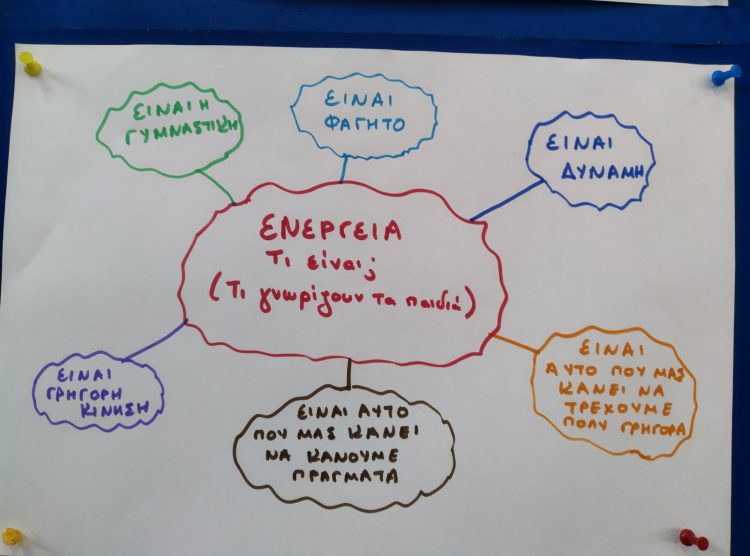 ΕΙΝΑΙ Η
ΓΥΜΝΑΣΤΙΚΗ
ΕΙΝΑΙ
ΦΑΓΗΤΟ
ΕΙΝΑΙ
ΔΥΝΑΜΗ
ΕΝΕΡΓΕΙΑ
Τι είναι;
(Τι γνωρίζουν τα παιδιά)
ΕΙΝΑΙ
ΓΡΗΓΟΡΗ
ΚΙΝΗΣΗ
ΕΙΝΑΙ ΑΥΤΟ
ΠΟΥ ΜΑΣ ΚΑΝΕΙ
ΝΑ ΚΑΝΟΥΜΕ
ΠΡΑΓΜΑΤΑ
ΕΙΝΑΙ
ΑΥΤΟ ΠΟΥ ΜΑΣ
ΚΑΝΕΙ ΝΑ
ΤΡΕΧΟΥΜΕ
ΠΟΛΥ ΓΡΗΓΟΡΑ